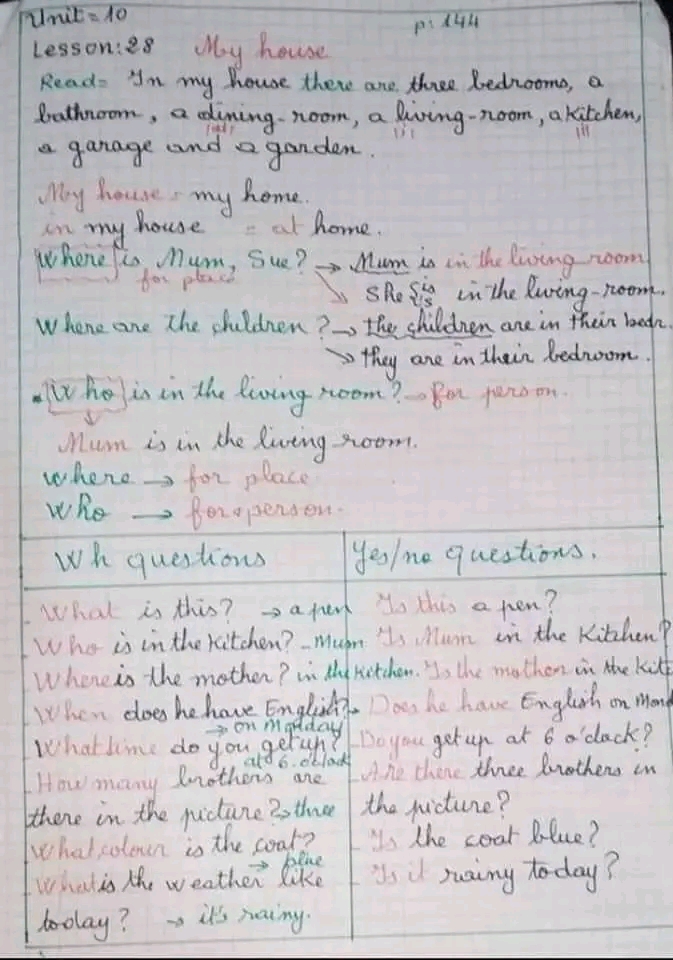 Unit = 10 p: 144
Lesson: 28 My house
Read = In my house there are three bedrooms, a
bathroom, a dining-room, a living-room, a kitchen,
a garage and a garden.
My house = my home.
in my house = at home.
Where is Mum, Sue? → Mum is in the living room
for place
→ She is 's in the living-room.
Where are the children? → the children are in their bedr.
→ they are in their bedroom.
. Who is in the living room? → for person.
Mum is in the living-room.
where → for place
who → for person.
Wh questions Yes/no questions.
What is this? → a pen Is this a pen?
Who is in the kitchen? - Mum Is Mum in the Kitchen?
Where is the mother? in the kitchen. Is the mother in the Kit
When does he have English? Does he have English on Mond
→ on Monday
What time do you get up? Do you get up at 6 o'clock?
at 6. o'clock
How many brothers are Are there three brothers in
there in the picture? → three the picture?
What colour is the coat? Is the coat blue?
→ blue
What is the weather like Is it rainy today?
today? → it's rainy.